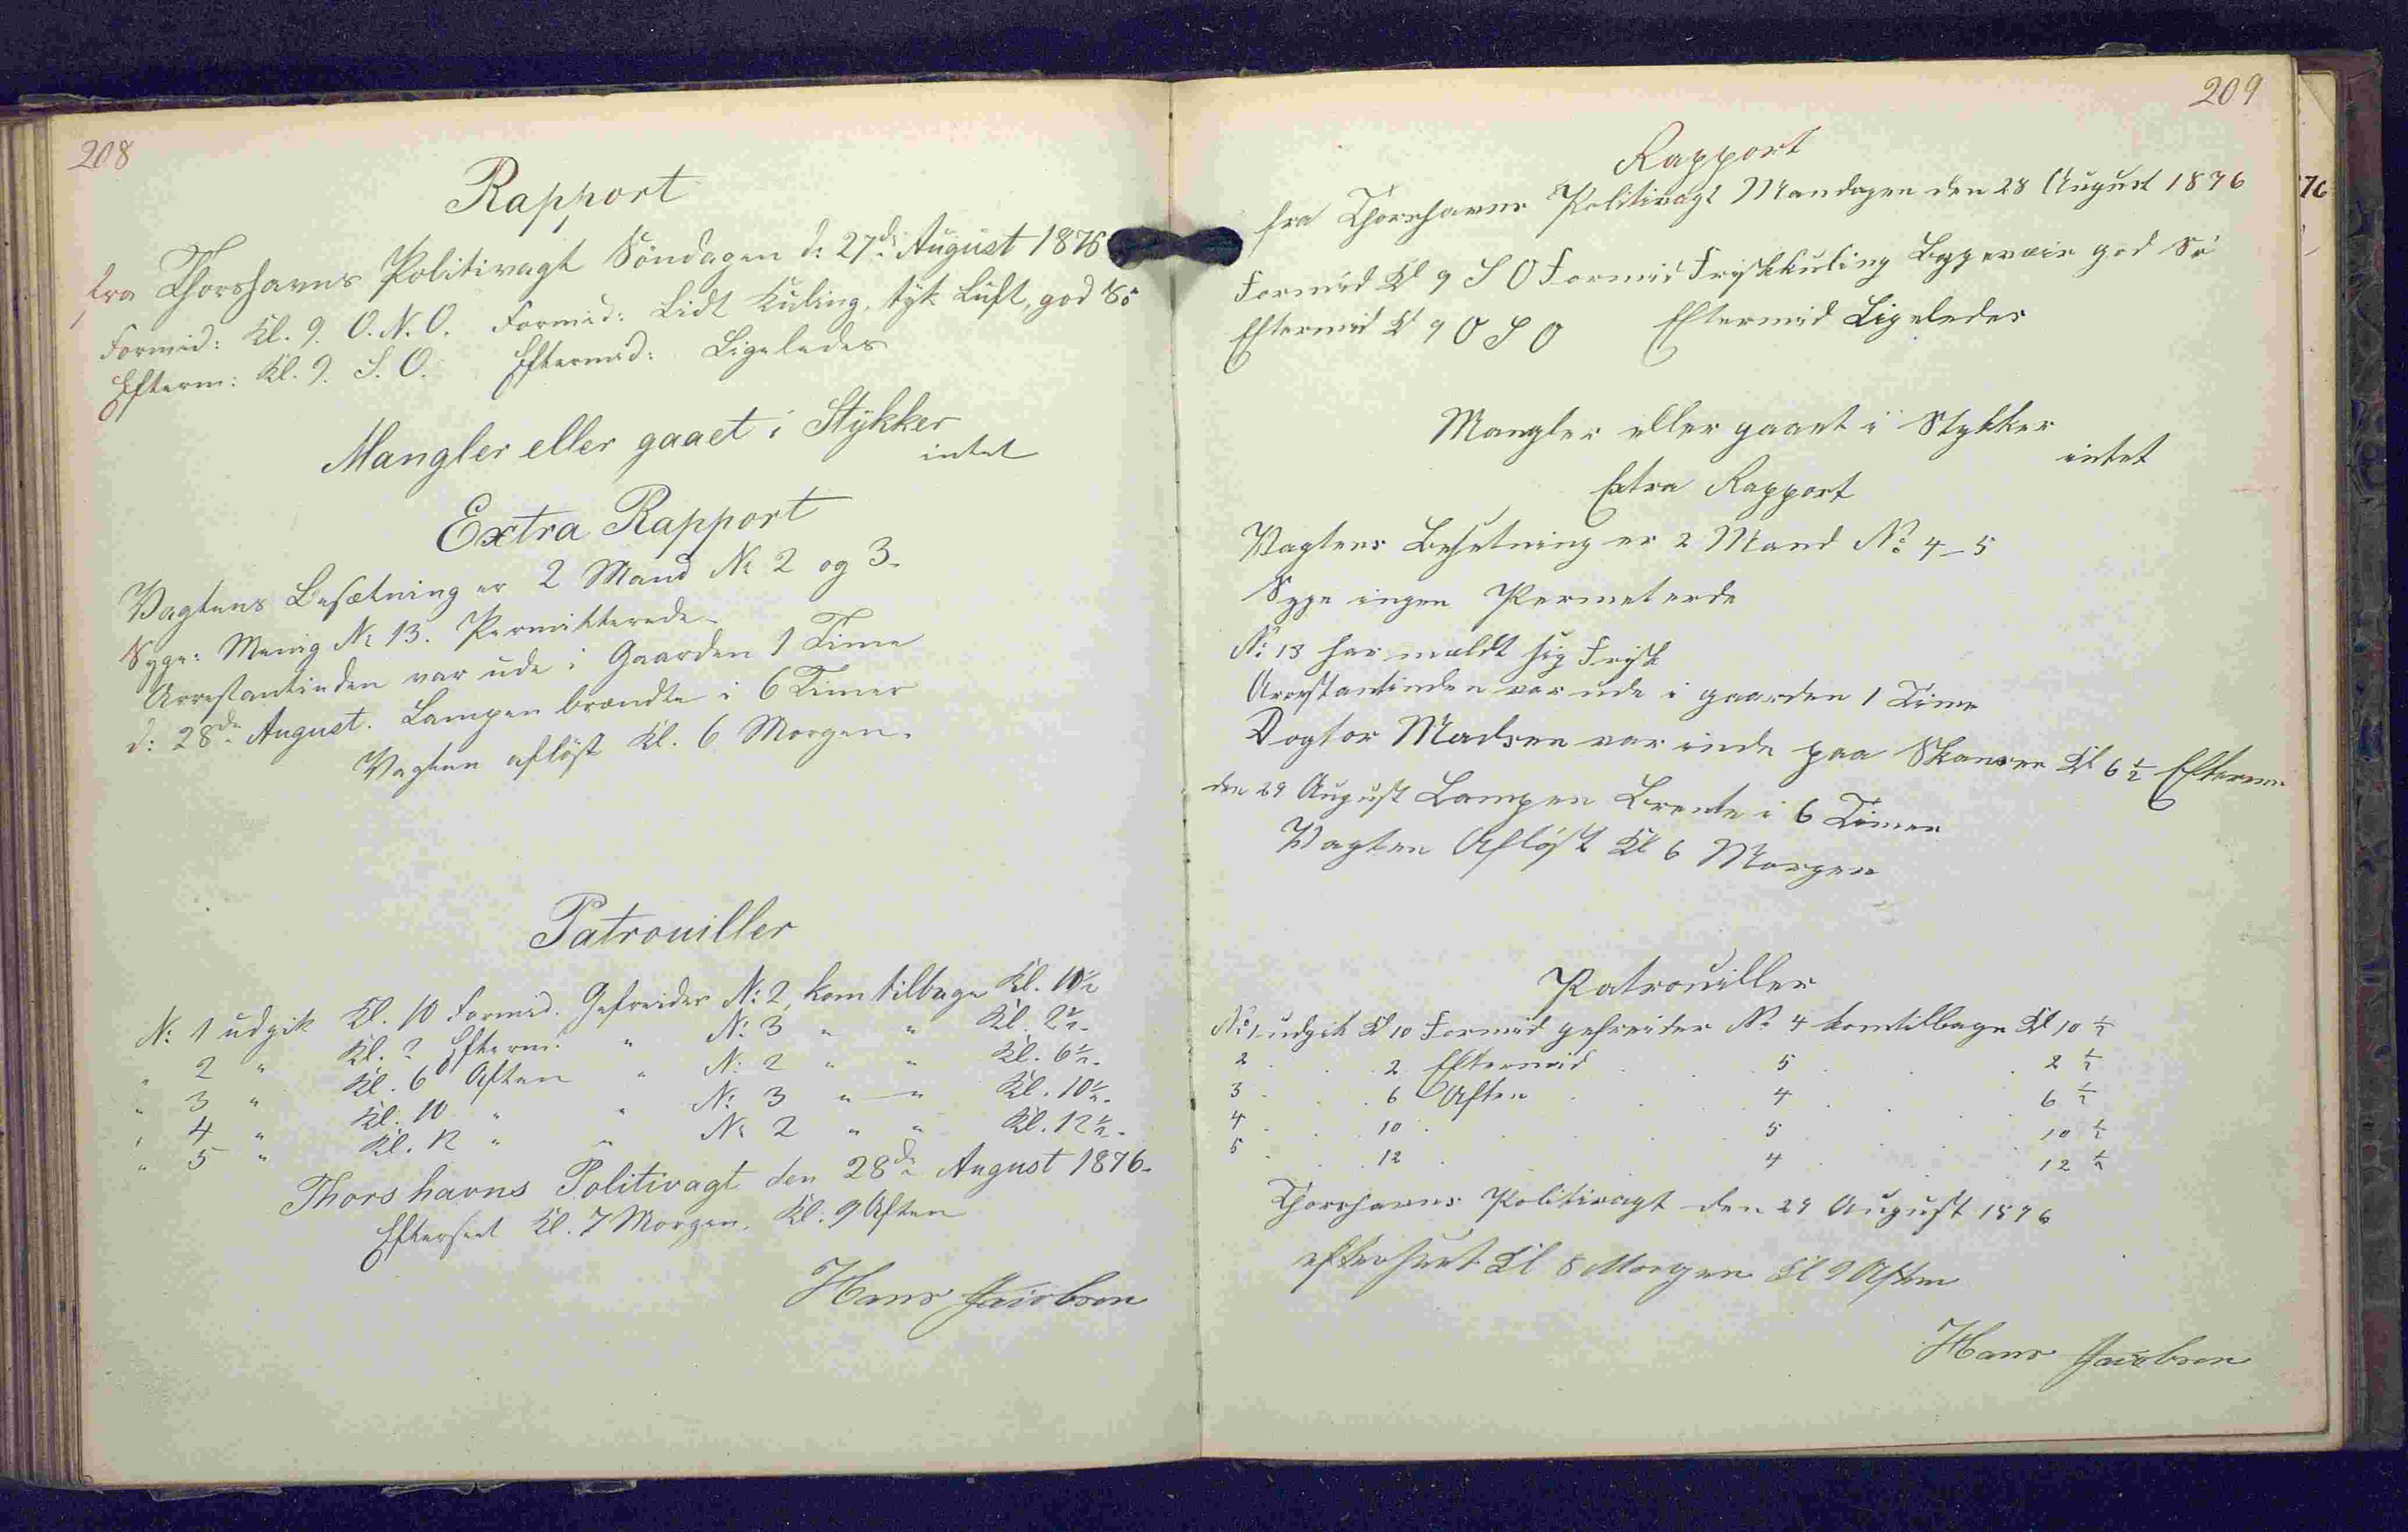 208
Rapport
fra Thorshavns Politivagt Söndagen d: 27de August 1876
Formid: Kl. 9. O.N.O. Formid: Lidt Kuling, tyk Luft, god Sö
Efterm: Kl. 9. S.O. Eftermid: Ligeledes
Mangler eller gaaet i Stykker
intet
Extra Rapport
Vagtens Besætning er 2 Mand No 2 og 3.
Syge: Menig No 13. Permitterede -
Arrestantinden var ude i Gaarden 1 Time
d: 28de August. Lampen brændte i 6 Timer
Vagten aflöst Kl. 6 Morgen.
Patrouiller
No 1 udgik Kl. 10 Formid. Gefreider No 2, kom tilbage Kl. 10½
" 2 " Kl. 2 Efterm. " No 3 " " Kl. 2½-
" 3 " Kl. 6 Aften " No 2 " " Kl. 6½-
" 4 " Kl. 10 " " No 3 " " Kl. 10½-
" 5 " Kl. 12 " " No 2 " " Kl. 12½-
Thorshavns Politivagt den 28de August 1876-
Efterseet Kl. 7 Morgen. Kl. 9 Aften
Hans Jacobsen
209
Rapport
fra Thorshavns Politivagt Mandagen den 28 August 1876
Formid Kl 9 S O Formid Friskkuling Bygevæir god Sö
Eftermid Kl 9 O S O Eftermid Ligeledes
Mangler eller gaaet i Stykker
intet
Extra Rapport
Vagtens Besetning er 2 Mand No 4-5
Syge ingen Permeterde
No 13 har meldt sig Frisk
Arrestantinden var ude i gaarden 1 Time
Dogtor Madsen var inde paa Skansen Kl 6½ Efterm
den 29 August Lampen Brente i 6 Timer
Vagten Aflöst Kl 6 Morgen
Patrouiller
No 1 udgik Kl 10 Formid gefreider No 4 komtilbage Kl 10 ½
2 . . 2 Eftermid . . 5 . . 2 ½
3 . . 6 Aften . . 4 . . 6 ½
4 . . 10 . . 5 . . 10 ½
5 . . 12 . . 4 . . 12 ½
Thorshavns Politivagt den 29 August 1876
efterseet Kl 8 Morgen Kl 9 Aften
Hans Jacobsen
76